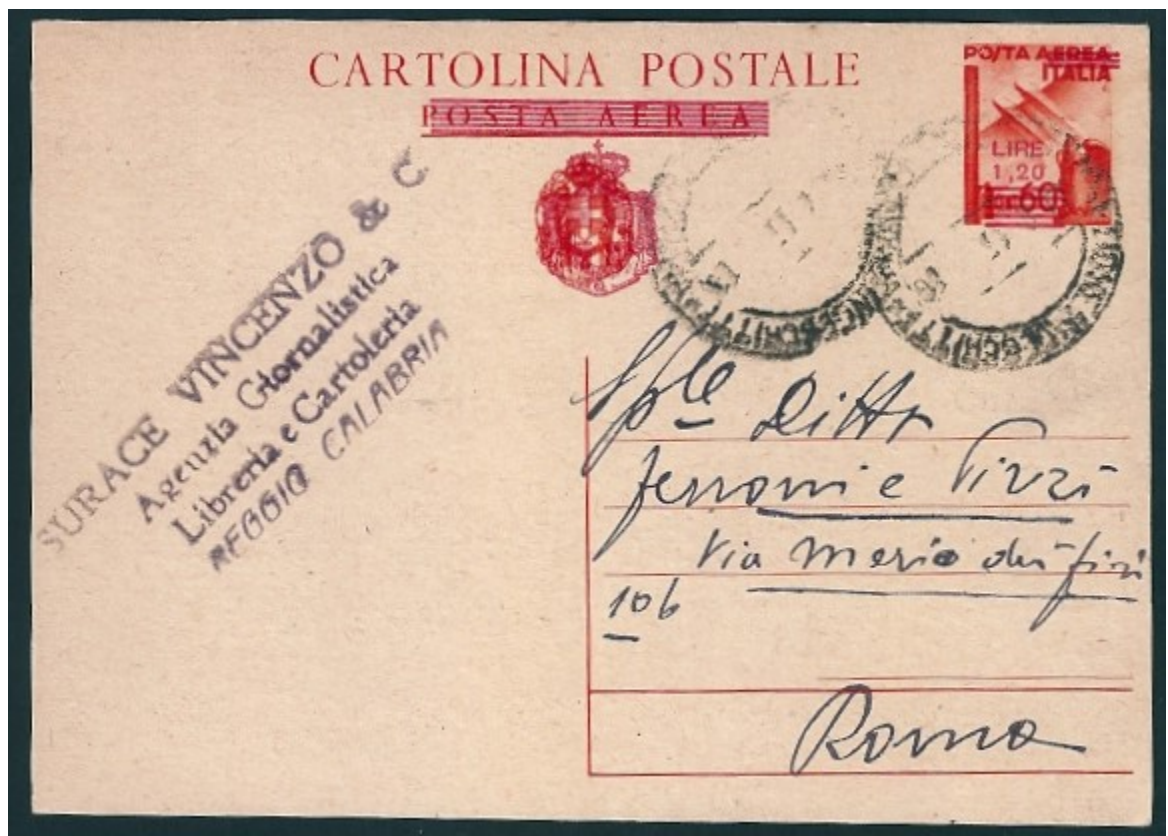 CARTOLINA POSTALE
POSTA AEREA
POSTA AEREA
ITALIA
LIRE
1,20
60
SURACE VINCENZO & C
Agenzia Giornalistica
Libreria e Cartoleria
REGGIO CALABRIA
Sple Ditta
Ferroni e
Via Mario dei fiori
106
Roma